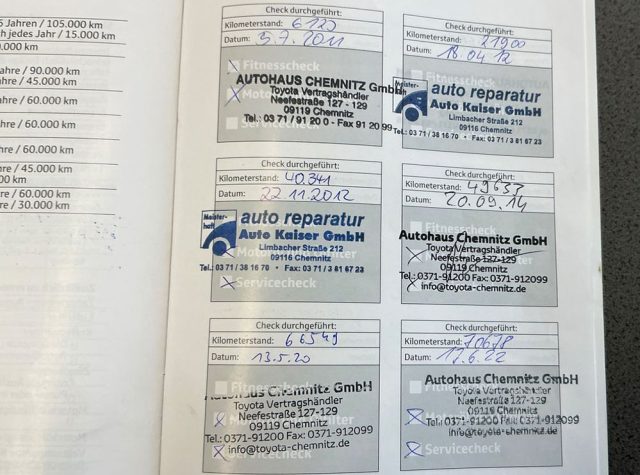 5 Jahren / 105.000 km
h jedes Jahr / 15.000 km
0.000 km
ahre / 90.000 km
ahre / 45.000 km
ahre / 60.000 km
ahre / 60.000 km
ahre / 45.000 km
00 km
ahre / 60.000 km
ahre / 30.000 km
Check durchgeführt:
Kilometerstand: 6120
Datum: 5.7.2011
Fitnesscheck
AUTOHAUS CHEMNITZ GmbH
Toyota Vertragshändler
Neefestraße 127 - 129
09119 Chemnitz
Tel.: 03 71 / 91 20 0 - Fax 91 20 99
Check durchgeführt:
Kilometerstand: 21900
Datum: 18.04.12
Meister-
haft
auto reparatur
Auto Kaiser GmbH
Limbacher Straße 212
09116 Chemnitz
Tel.: 03 71 / 38 16 70 • Fax: 03 71 / 3 81 67 23
Check durchgeführt:
Kilometerstand: 40.341
Datum: 22.11.2012
Meister-
haft
auto reparatur
Auto Kaiser GmbH
Limbacher Straße 212
09116 Chemnitz
Tel.: 03 71 / 38 16 70 • Fax: 03 71 / 3 81 67 23
Servicecheck
Check durchgeführt:
Kilometerstand: 49637
Datum: 20.09.14
Autohaus Chemnitz GmbH
Toyota Vertragshändler
Neefestraße 127-129
09119 Chemnitz
Tel.: 0371-91200 Fax: 0371-912099
info@toyota-chemnitz.de
Check durchgeführt:
Kilometerstand: 66549
Datum: 13.5.20
Fitnesscheck
Autohaus Chemnitz GmbH
Toyota Vertragshändler
Neefestraße 127-129
09119 Chemnitz
Tel.: 0371-91200 Fax: 0371-912099
info@toyota-chemnitz.de
Servicecheck
Check durchgeführt:
Kilometerstand: 70678
Datum: 17.6.22
Autohaus Chemnitz GmbH
Toyota Vertragshändler
Neefestraße 127-129
09119 Chemnitz
Tel.: 0371-91200 Fax: 0371-912099
info@toyota-chemnitz.de
Servicecheck